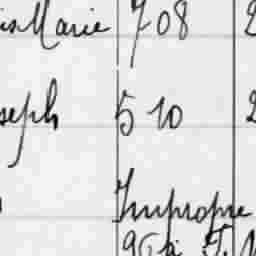 is Marie 708 2
seph 510 2
Impropre